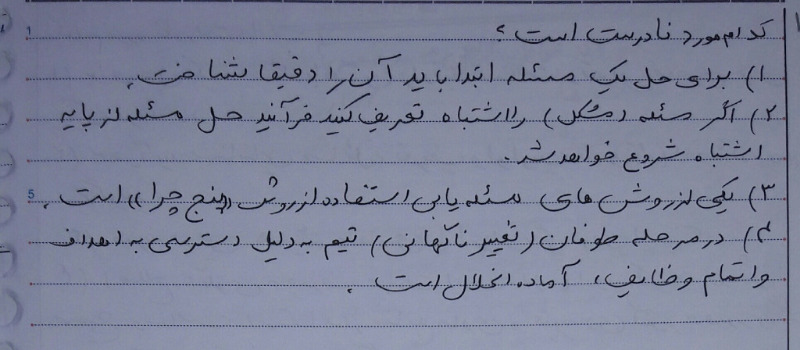 کدام مورد نادرست است؟
۱) برای حل یک مسئله ابتدا باید آن را دقیقا شناخت.
۲) اگر مسئله (مشکل) را اشتباه تعریف کنید فرآیند حل مسئله از پایه
اشتباه شروع خواهد شد.
۳) یکی از روش های مسئله یابی استفاده از روش «پنج چرا» است.
۴) در مرحله طوفان (تغییر ناگهانی) تیم به دلیل دسترسی به اهداف
و اتمام وظایف، آماده انحلال است.